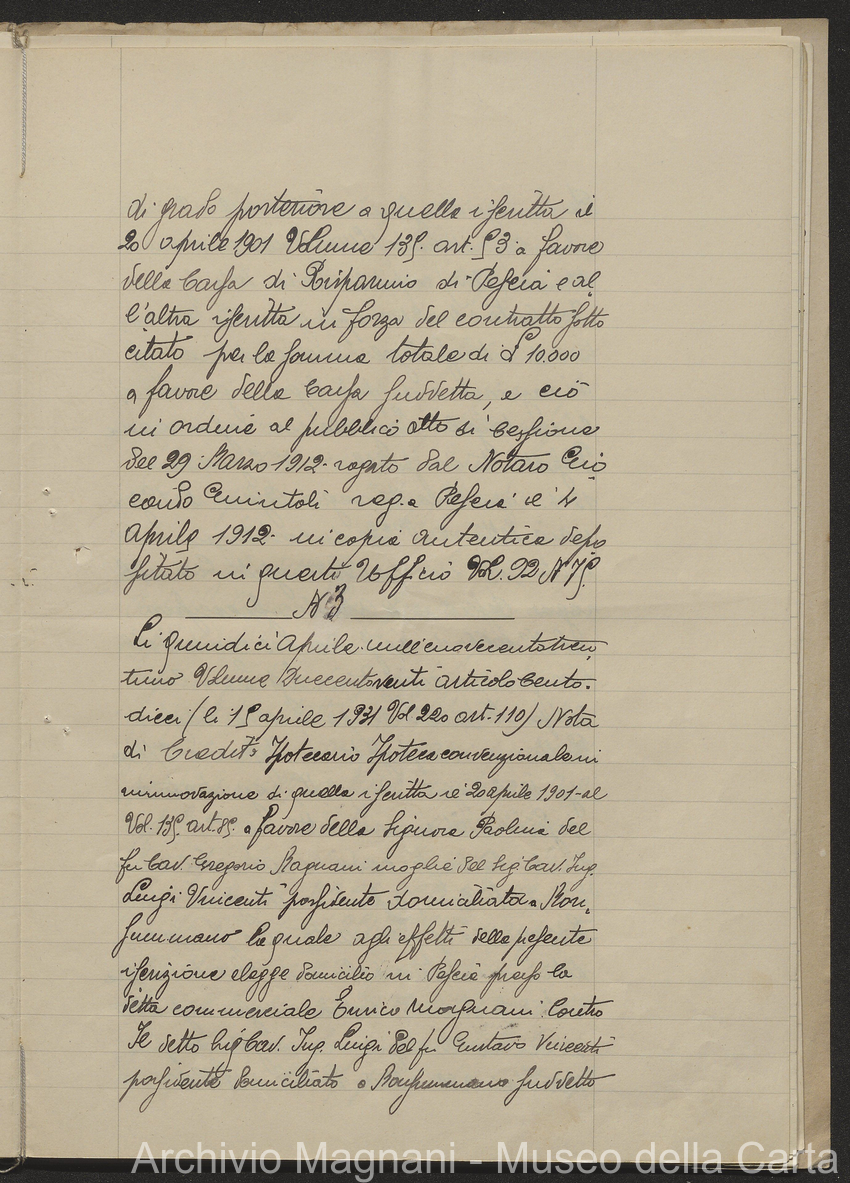 di grado posteriore a quella iscritta il
20 aprile 1901 Volume 135. art. 53 a favore
della Cassa di Risparmio di Pescia e al
l'altra iscritta in forza del contratto sotto
citato per la somma totale di £ 10.000
a favore della Cassa suddetta, e ciò
in ordine al pubblico atto di cessione
del 29 Marzo 1912 rogato dal Notaro Gio
condo Guintoli reg. a Pescia il 4
Aprile 1912 in copia autentica depo
sitato in questo Uffici Vol. 92 N 75.
N 3
Li quindici Aprile millenovecentotren
tuno Volume Duecentoventi articolo Cento.
dieci (li 15 aprile 1931 Vol 220 art. 110) Nota
di Credito Ipotecario Ipoteca convenzionale in
rinnovazione di quella iscritta il 20 aprile 1901 al
Vol. 135 art. 85. a favore della Signora Paolina del
fu Cav. Gregorio Magnani moglie del Sig Cav. Ing.
Luigi Vincenti possidente domiciliata a Mon
summano la quale agli effetti della presente
iscrizione elegge domicilio in Pescia presso la
ditta commerciale Enrico Magnani Contro
Il detto Sig Cav. Ing. Luigi Del fu Gustavo Vincenti
possidente domiciliato a Monsummano suddetto
Archivio Magnani - Museo della Carta